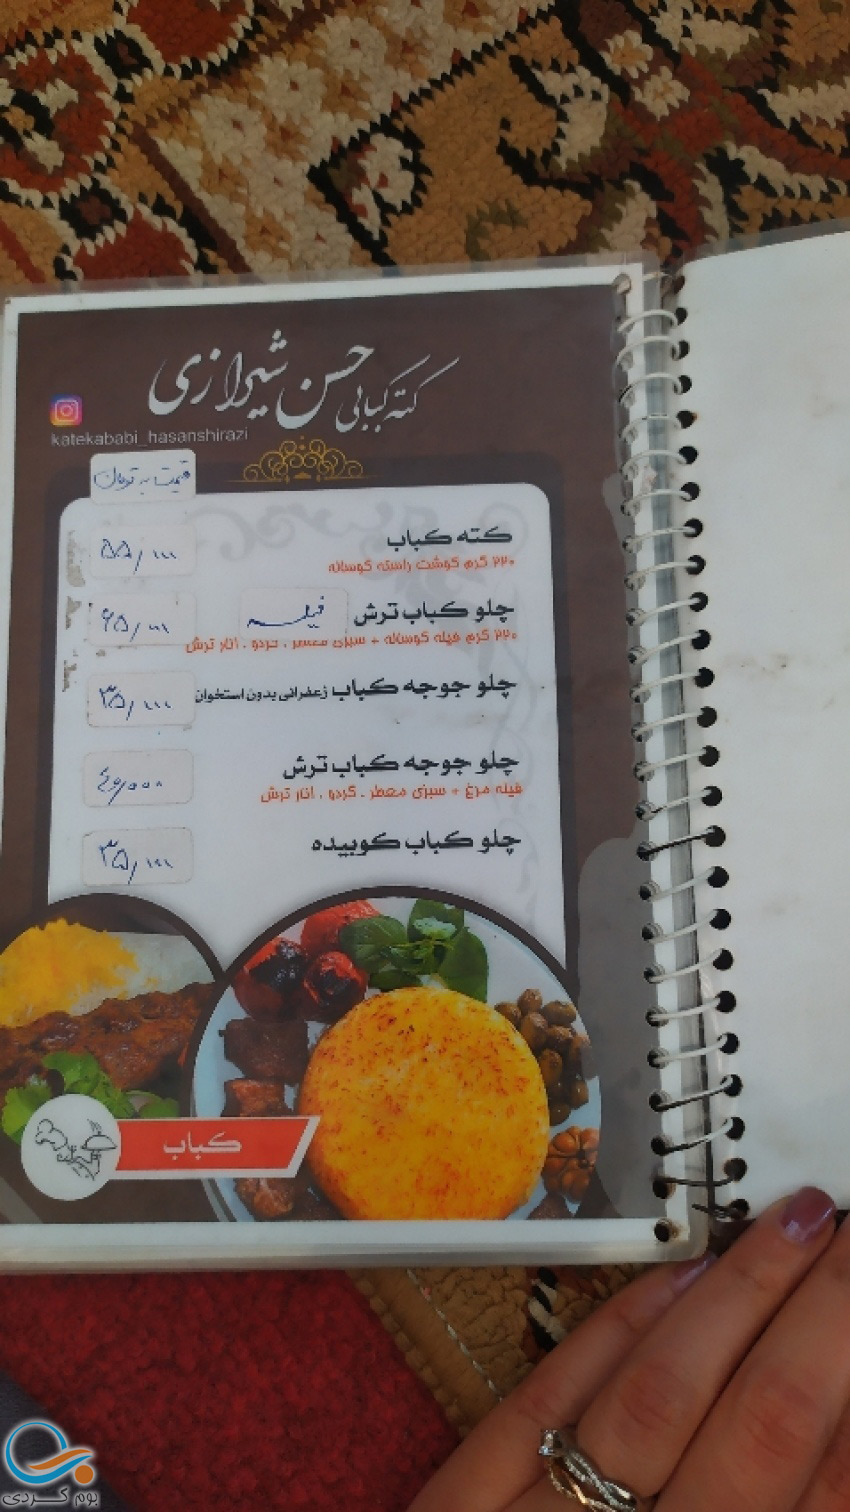 کته کبابی حسن شیرازی
katekababi_hasanshirazi
قیمت به تومان
کته کباب ۵۵/۰۰۰
۲۲۰ گرم گوشت راسته گوساله
چلو کباب ترش فیله ۶۵/۰۰۰
۲۲۰ گرم فیله گوساله + سبزی معطر . گردو . انار ترش
چلو جوجه کباب زعفرانی بدون استخوان ۳۵/۰۰۰
چلو جوجه کباب ترش ۴۰/۰۰۰
فیله مرغ + سبزی معطر . گردو . انار ترش
چلو کباب کوبیده ۳۵/۰۰۰
کباب
بوم گردی